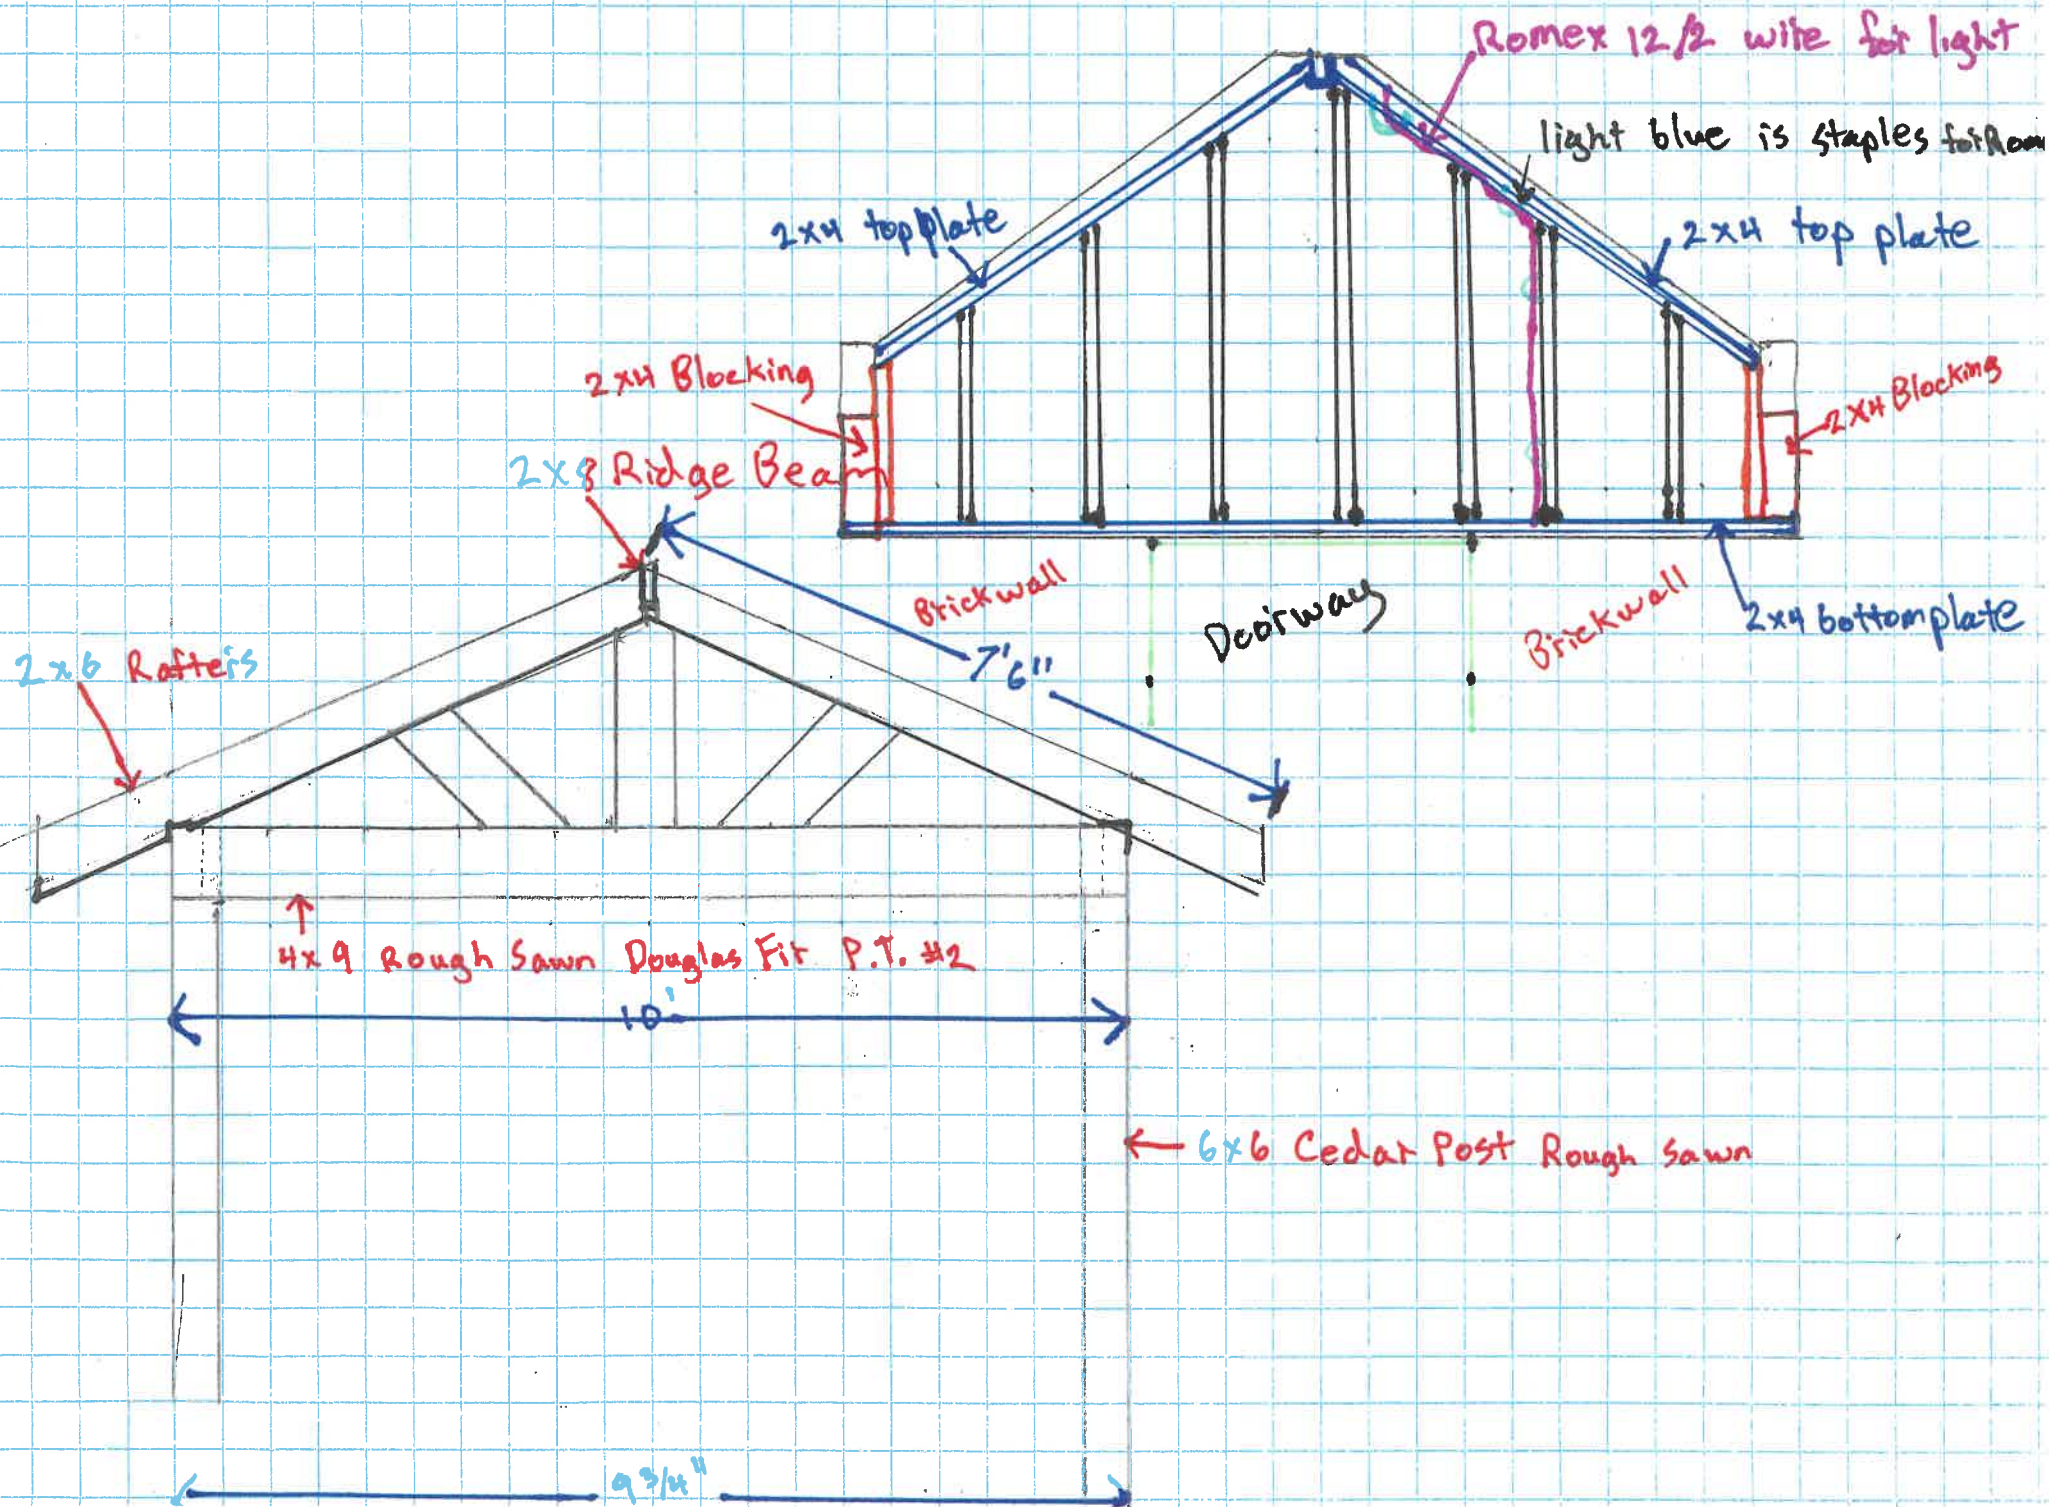 Romex 12/2 wire for light
light blue is staples for
2x4 top plate
2x4 top plate
2x4 Blocking
2x4 Blocking
2x8 Ridge Bea
Brickwall
Doorway
Brickwall
2x4 bottom plate
7'6"
2x6 Rafters
4x9 Rough Sawn Douglas Fir P.T. #2
10'
6x6 Cedar Post Rough Sawn
9 3/4"